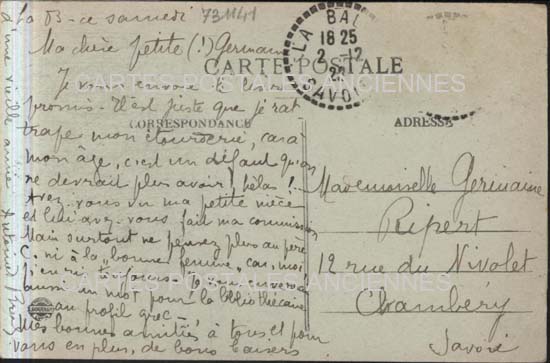 La B-ce samedi
731141
Ma chère petite (!) Germaine
LA BAL
18 25
2 -12
SAVOIE
CARTE POSTALE
CARTES POSTALES ANCIENNES
Je vous envoie
promis. Il est juste que je rat
trape mon étourderie, car à
CORRESPONDANCE
ADRESSE
mon âge, c'est un défaut qu'on
ne devrait plus avoir, hélas !..
Avez-vous vu ma petite nièce
et lui avez-vous fait ma commission
Mais surtout ne pensez plus au père
C. ni à la "bonne femme" car, moi
j'en ri
aussi un mot pour la bibliothécaire
au profil grec -
Mes bonnes amitiés à tous et pour
vous en plus, de bons baisers
d'une vieille amie
Mademoiselle Germaine
Ripert
12 rue du Nivolet
Chambéry
Savoie